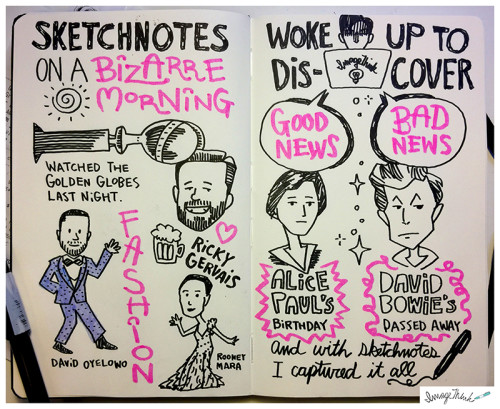 SKETCHNOTES
ON A BIZARRE
MORNING
WATCHED THE
GOLDEN GLOBES
LAST NIGHT.
RICKY
GERVAIS
FASHION
DAVID OYELOWO
ROONEY
MARA
WOKE UP TO
ImageThink
DIS-COVER
GOOD
NEWS
BAD
NEWS
ALICE
PAUL'S
BIRTHDAY
DAVID
BOWIE'S
PASSED AWAY
and with sketchnotes
I captured it all
ImageThink